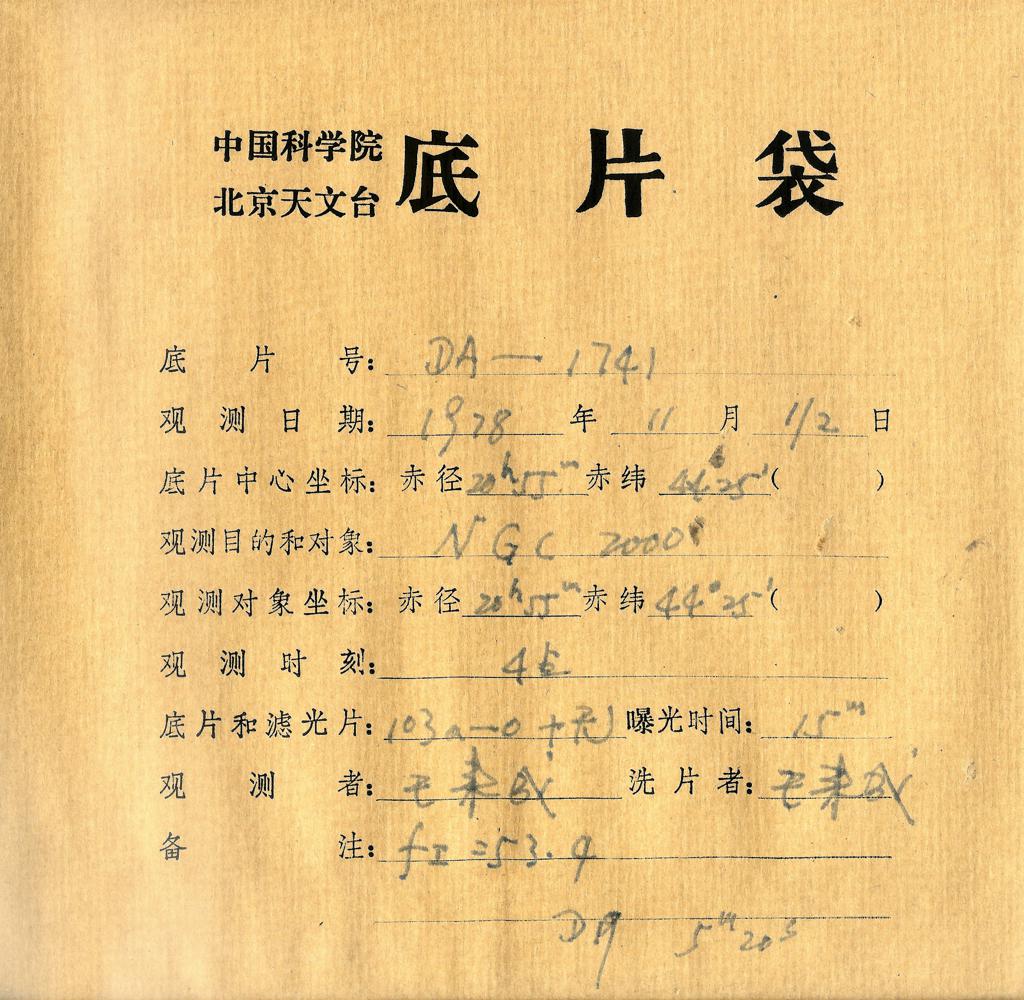 中国科学院
北京天文台
底片袋
底片号: DA—1741
观测日期: 1978 年 11 月 1/2 日
底片中心坐标: 赤径 20h55m 赤纬 44°25′ ( )
观测目的和对象: NGC 7000
观测对象坐标: 赤径 20h55m 赤纬 44°25′ ( )
观测时刻: 4点
底片和滤光片: 103a-O + 无 曝光时间: 15m
观测者: 洗片者:
备注: fz = 53.9
5m 20s